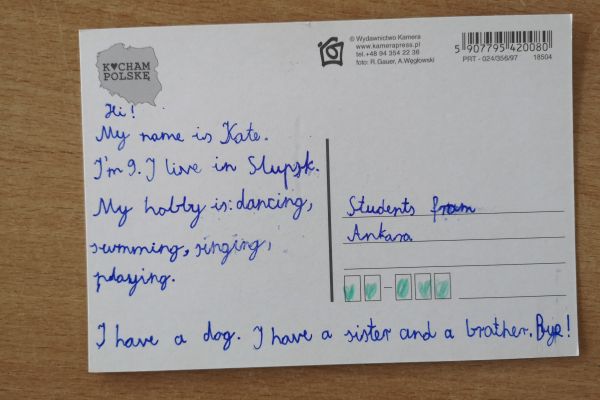 K♥CHAM
POLSKĘ
© Wydawnictwo Kamera
www.kamerapress.pl
tel.+48 94 354 22 36
foto: R.Gauer, A.Węgłowski
5 907795 420080
PRT - 024/356/97 18504
Hi!
My name is Kate.
I'm 9. I live in Slupsk.
My hobby is: dancing,
swmming, singing,
playing.
I have a dog. I have a sister and a brather. Bye!
Students fram
Ankara